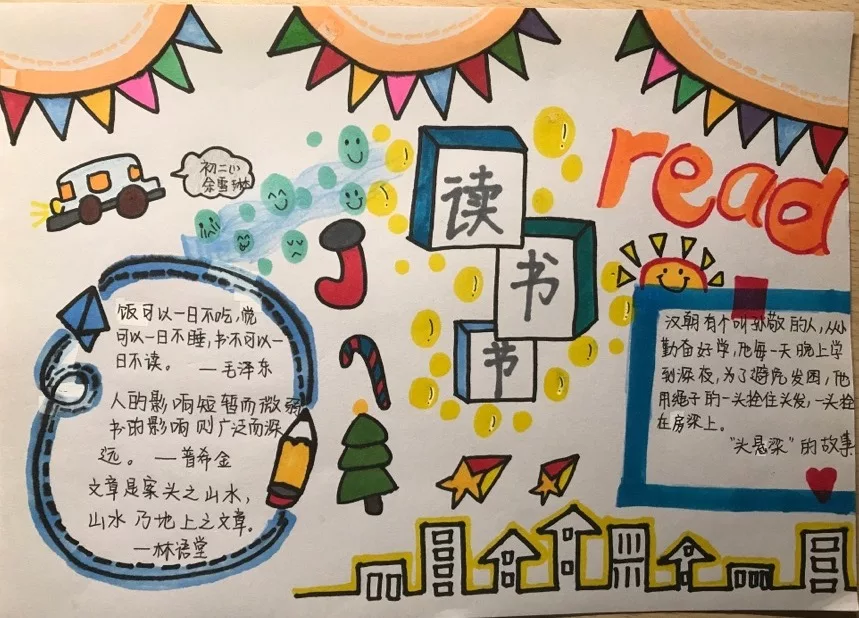 初二(1)
余雪琳
读
书
节
read
饭可以一日不吃,觉
可以一日不睡,书不可以一
日不读。 —毛泽东
人的影响短暂而微弱
书的影响则广泛而深
远。 —普希金
文章是案头之山水,
山水乃地上之文章。
—林语堂
汉朝有个叫孙敬的人,从小
勤奋好学,他每一天晚上学
到深夜,为了避免发困,他
用绳子的一头拴住头发,一头拴
在房梁上。
"头悬梁"的故事